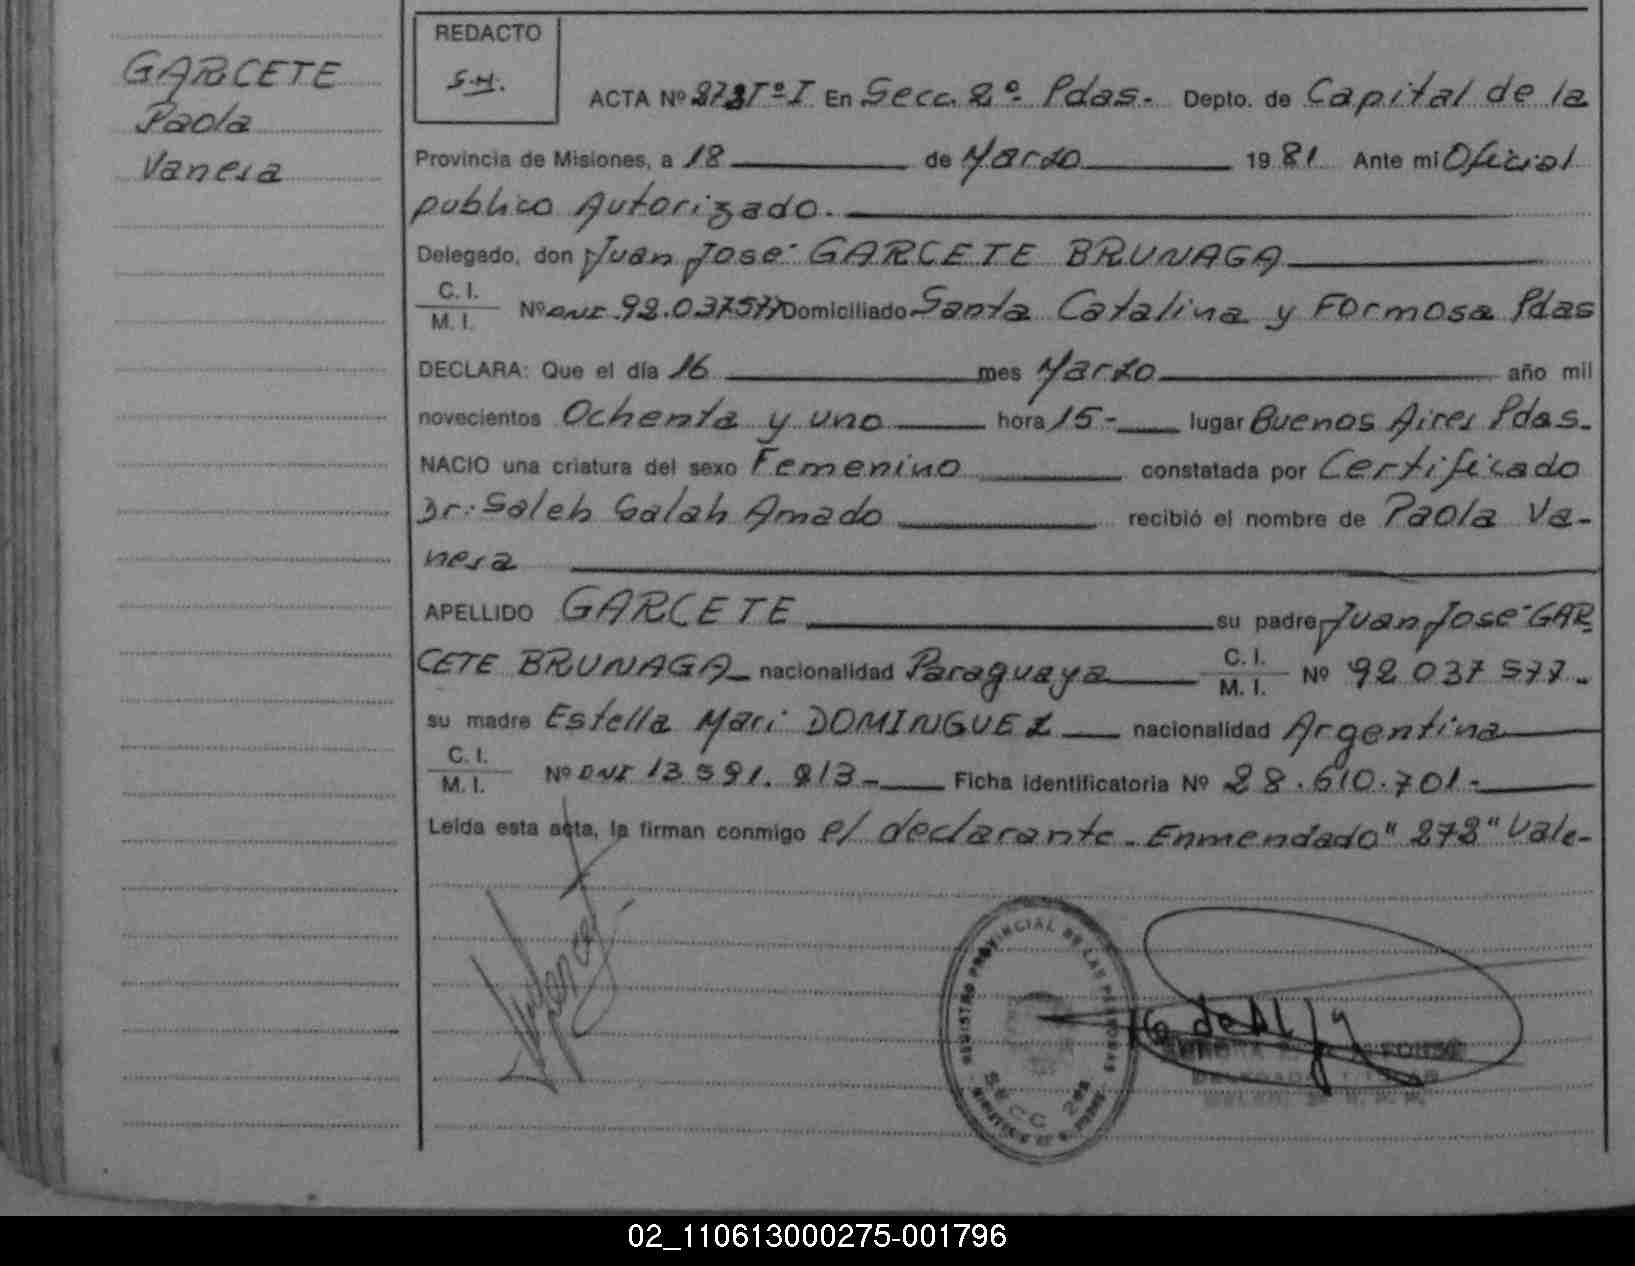 GARCETE
Paola
Vanesa
REDACTO
S.H.
ACTA Nº 272 Tº I En Secc. 2º Pdas. Depto. de Capital de la
Provincia de Misiones, a 18 de Marzo 1981 Ante mi Oficial
publico Autorizado.
Delegado, don Juan José GARCETE BRUNAGA
C. I.
M. I. Nº DNI 92.037577 Domiciliado Santa Catalina y Formosa Pdas
DECLARA: Que el día 16 mes Marzo año mil
novecientos Ochenta y uno hora 15- lugar Buenos Aires Pdas.
NACIO una criatura del sexo Femenino constatada por Certificado
Dr: Saleh Salah Amado recibió el nombre de Paola Va-
nesa
APELLIDO GARCETE su padre Juan José GAR
CETE BRUNAGA nacionalidad Paraguaya C. I. M. I. Nº 92 037 577-
su madre Estella Mari DOMINGUEZ nacionalidad Argentina
C. I.
M. I. Nº DNI 13.591.913- Ficha identificatoria Nº 28.610.701-
Leída esta acta, la firman conmigo el declarante. Enmendado "272" Vale-
REGISTRO PROVINCIAL DE LAS PERSONAS
SECC 2da
DELEGADO TITULAR
02_110613000275-001796